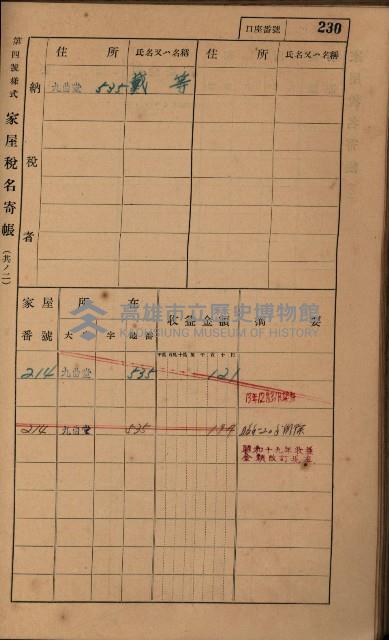 口座番號 230
第四號樣式 家屋稅名寄帳 (其ノ二)
納稅者
住所 氏名又ハ名稱 住所 氏名又ハ名稱
九曲堂 535 戴 等
家屋番號 所在 收益金額 摘要
大字 地番
高雄市立歷史博物館
KAOHSIUNG MUSEUM OF HISTORY
214 九曲堂 535 121
214 九曲堂 535 134
昭和十九年收益
金額改訂